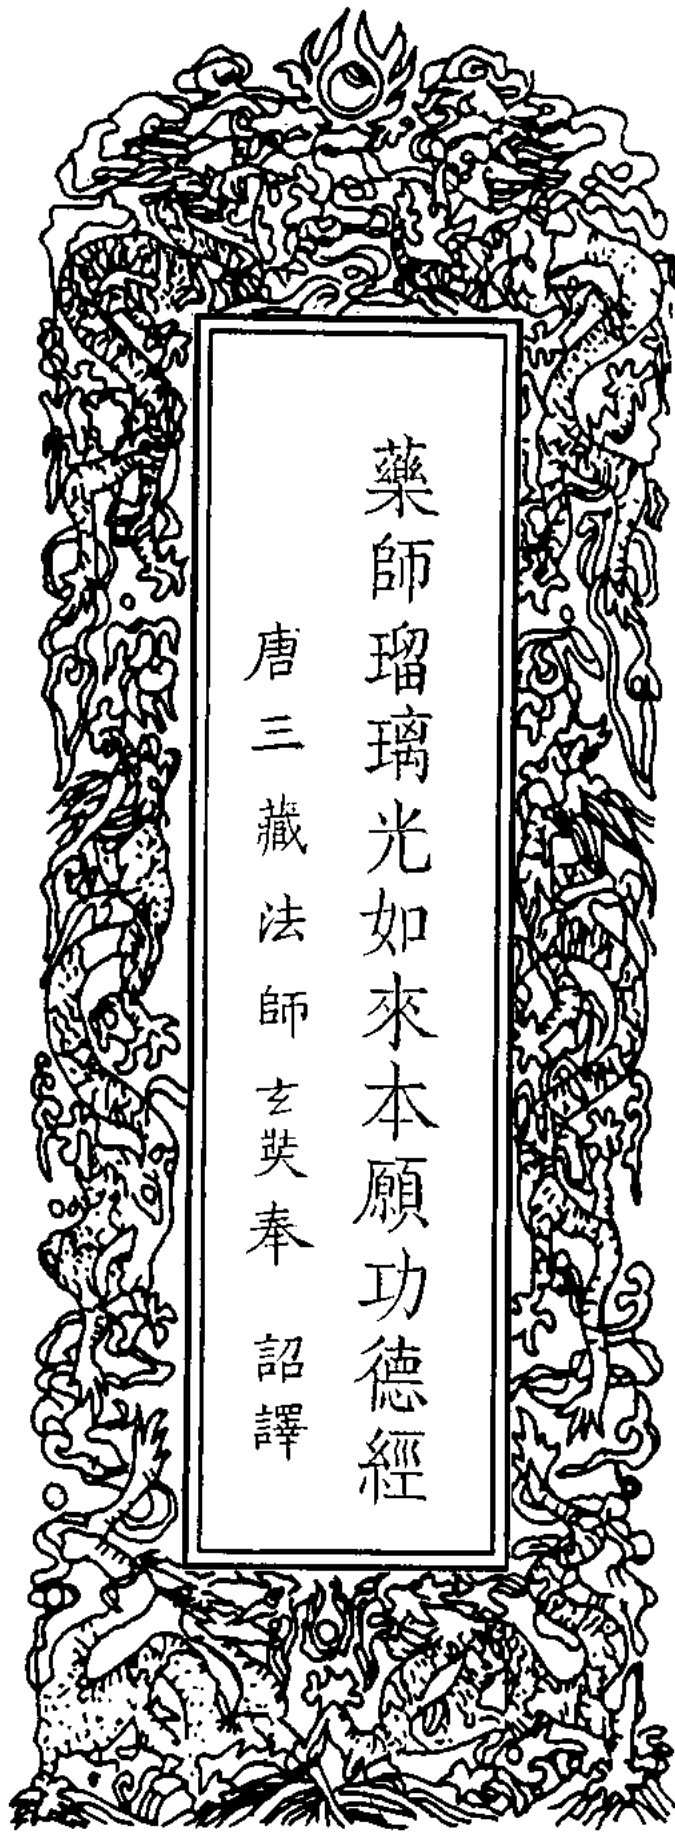 藥師瑠璃光如來本願功德經
唐三藏法師玄奘奉 詔譯